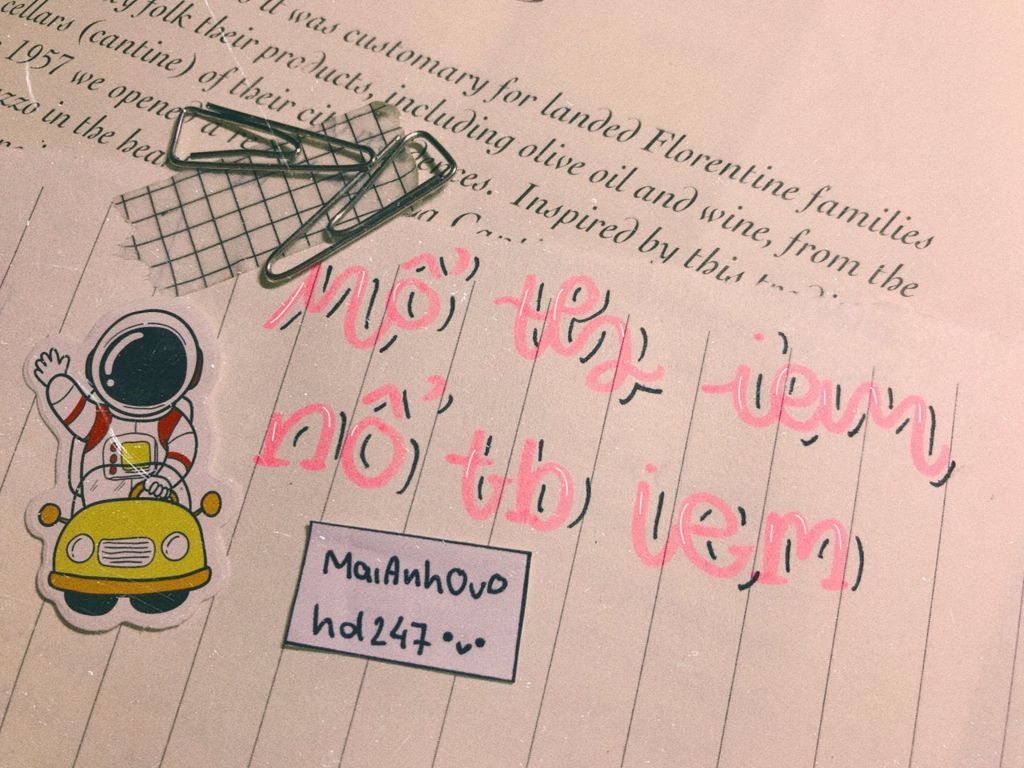 it was customary for landed Florentine families
folk their products, including olive oil and wine, from the
cellars (cantine) of their
1957 we opened a Inspired by this
in the
nố tba iem
nố tb iem
MaiAnhOvO
hd247 •ᴗ•